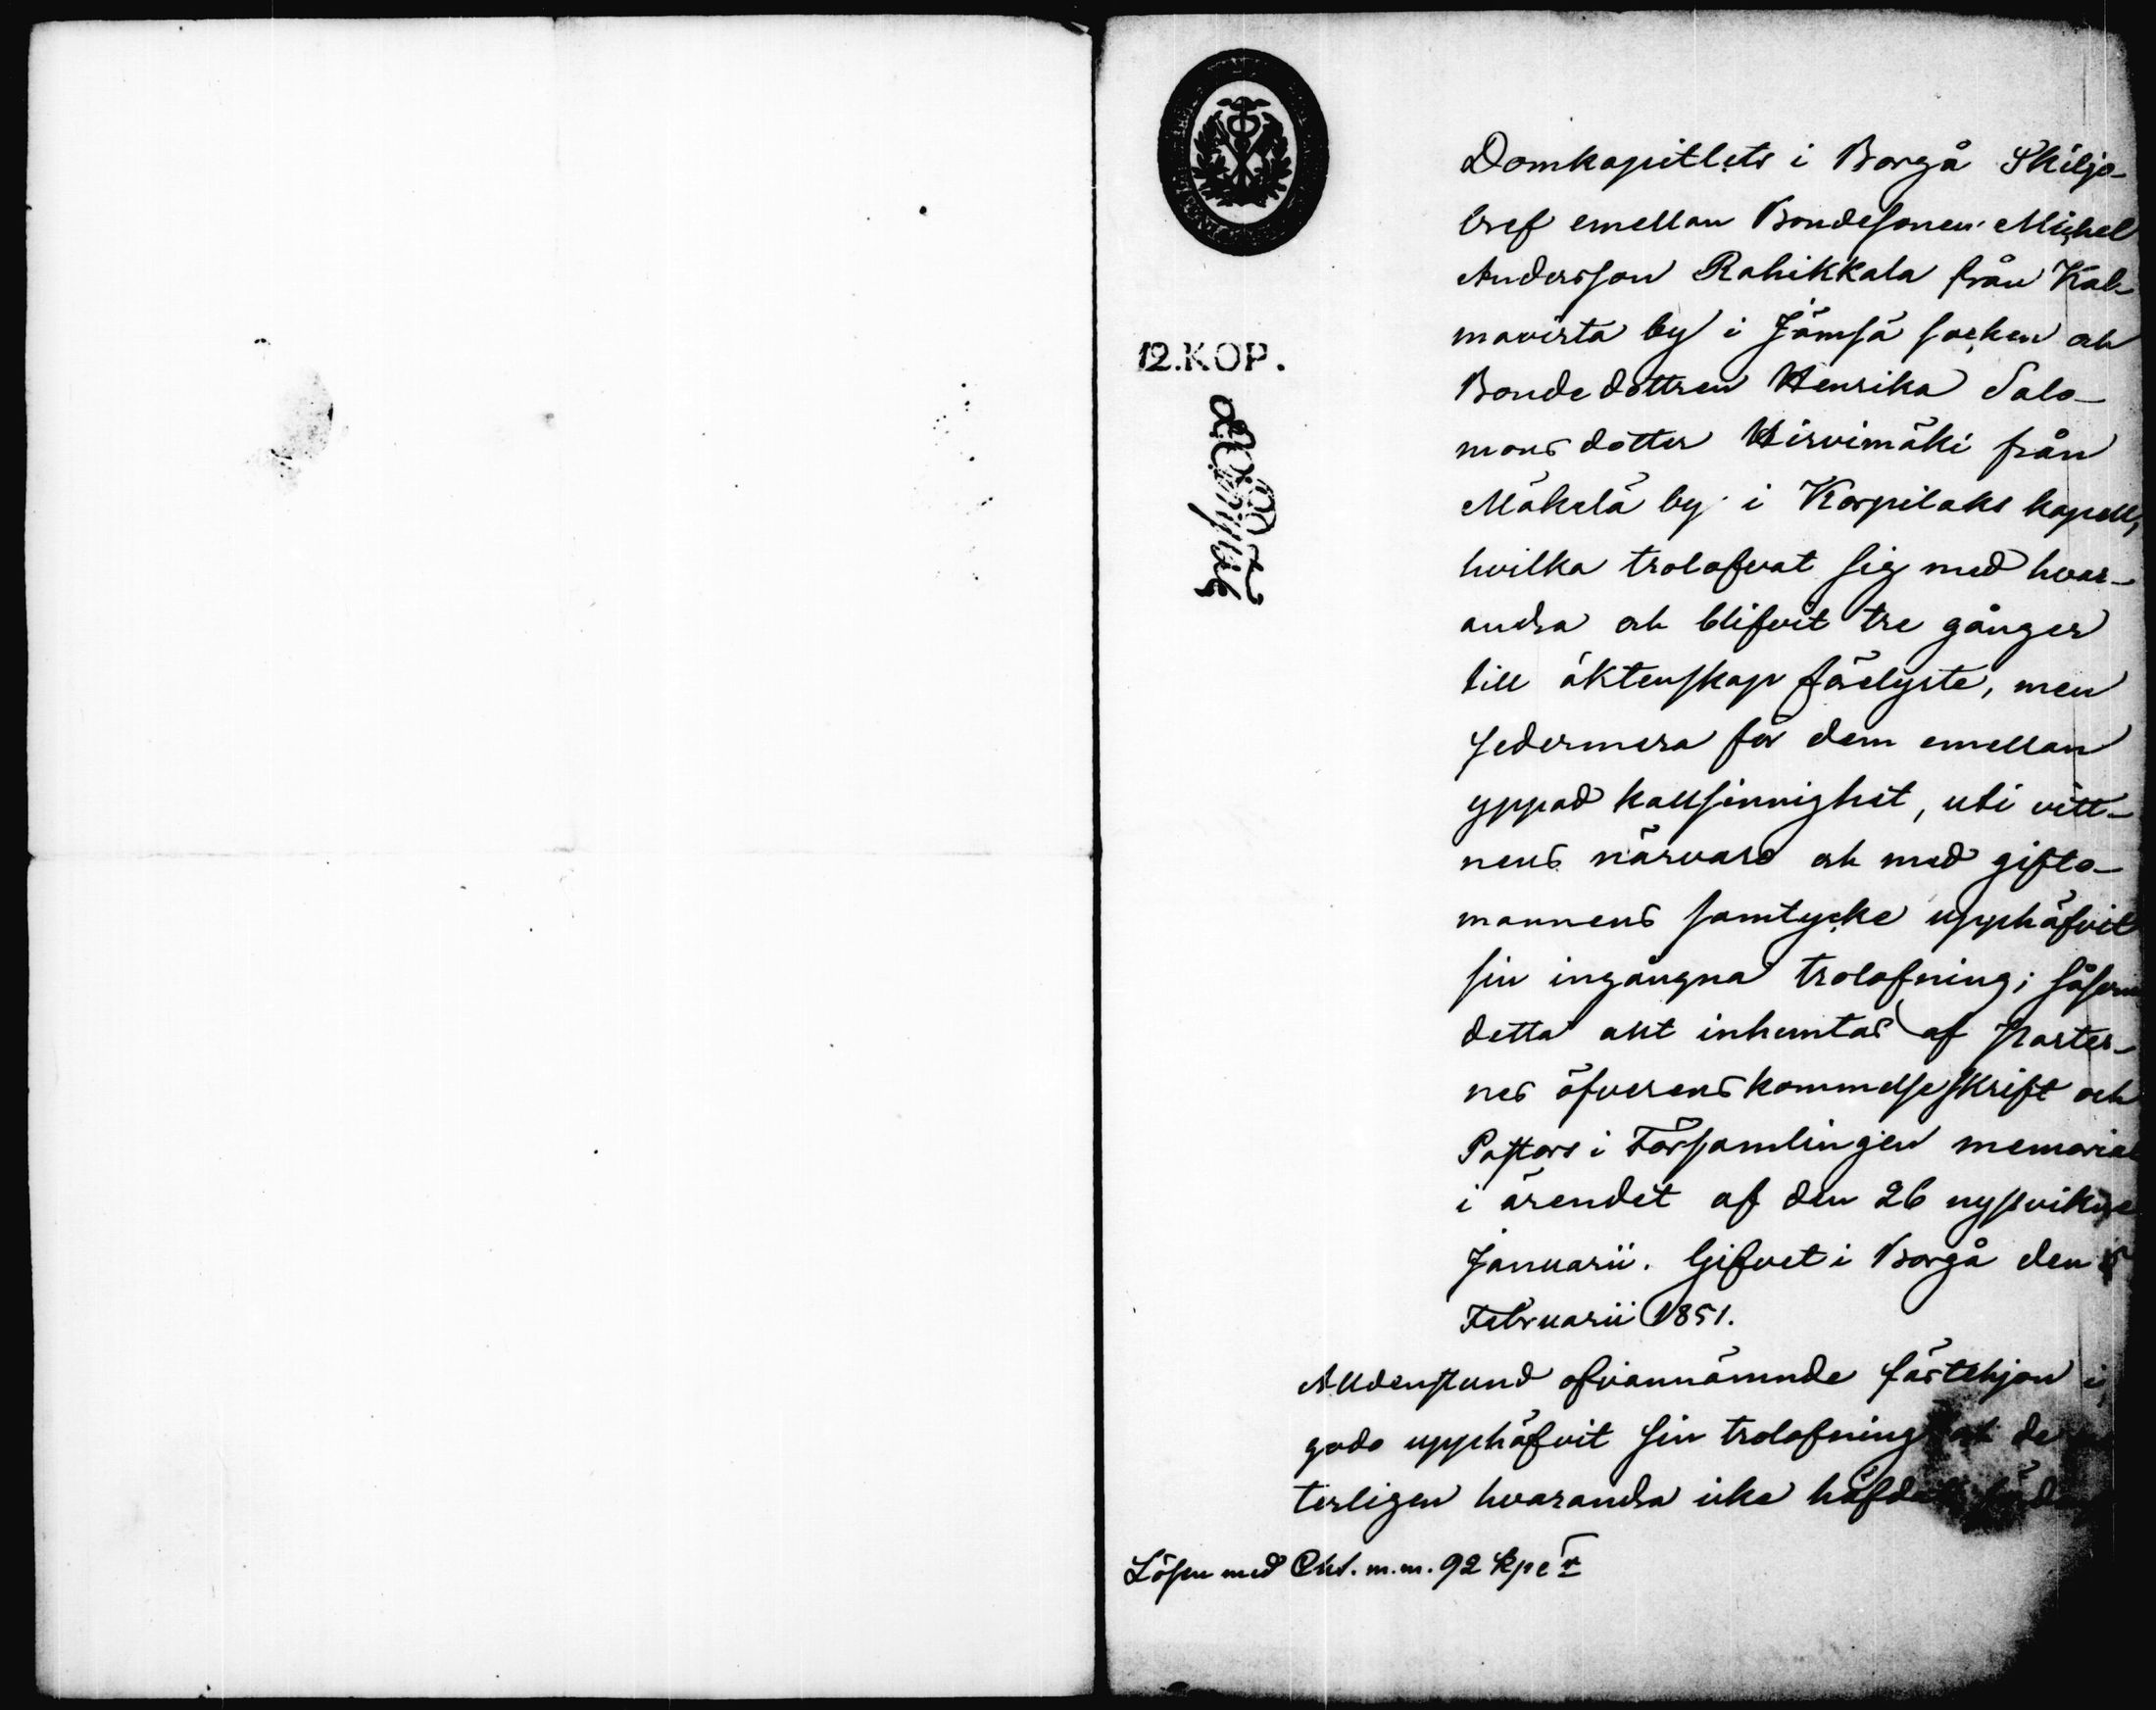 Domkapitlets i Borgå Skiljo-
bref emellan Bondesonen Michel
Andersson Rahikkala från Kal-
mavirta by i Jämsä socken och
Bondedottren Henrika Salo-
monsdotter Hirvimäki från
Mäkelä by i Korpilaks kapell,
hvilka trolofvat sig med hvar-
andra och blifvit tre gånger
till äktenskap förelyste, men
sedermera för dem emellan
yppad kallsinnighet, uti vitt-
nens närvaro och med gifto-
mannens samtycke upphäfvit
sin ingångna trolofning; såsom
detta allt inhemtas af Parter-
nes öfverenskommelseskrift och
Pastors i Församlingen memorial
i ärendet af den 26 nyssvikne
Januarii. Gifvet i Borgå den
Februarii 1851.
Alldenstund ofvannämnde fästehjon i
godo upphäfvit sin trolofning de
terligen hvarandra icke
12.KOP.
Lösen med Chl. m.m. 92 kpr